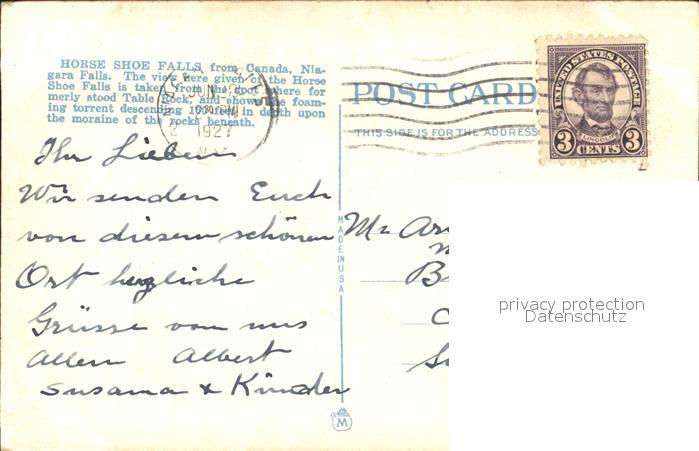 HORSE SHOE FALLS, from Canada, Nia-
gara Falls. The view here given of the Horse
Shoe Falls is taken from the spot where for-
merly stood Table Rock, and shows the foam-
ing torrent descending 158 feet in depth upon
the moraine of the rocks beneath.
JUN
1927
N.Y.
POST CARD
THIS SIDE IS FOR THE ADDRESS
UNITED STATES POSTAGE
LINCOLN
3 CENTS 3
Ihr Lieben
Wir senden Euch
von diesem schönen
Ort herzliche
Grüsse von uns
allen Albert
Susanna & Kinder
MADE IN USA
Mr
M
privacy protection
Datenschutz